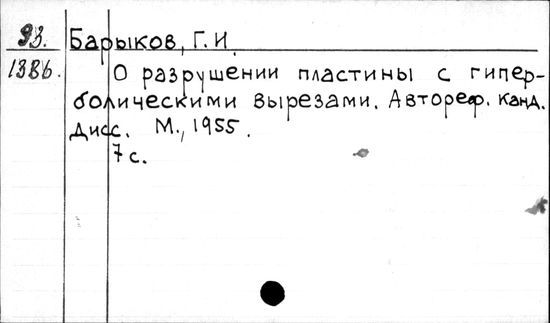 93. Барыков, Г. И.
1386. О разрушении пластины с гипер-
болическими вырезами. Автореф. канд.
дисс. М., 1955.
7 с.